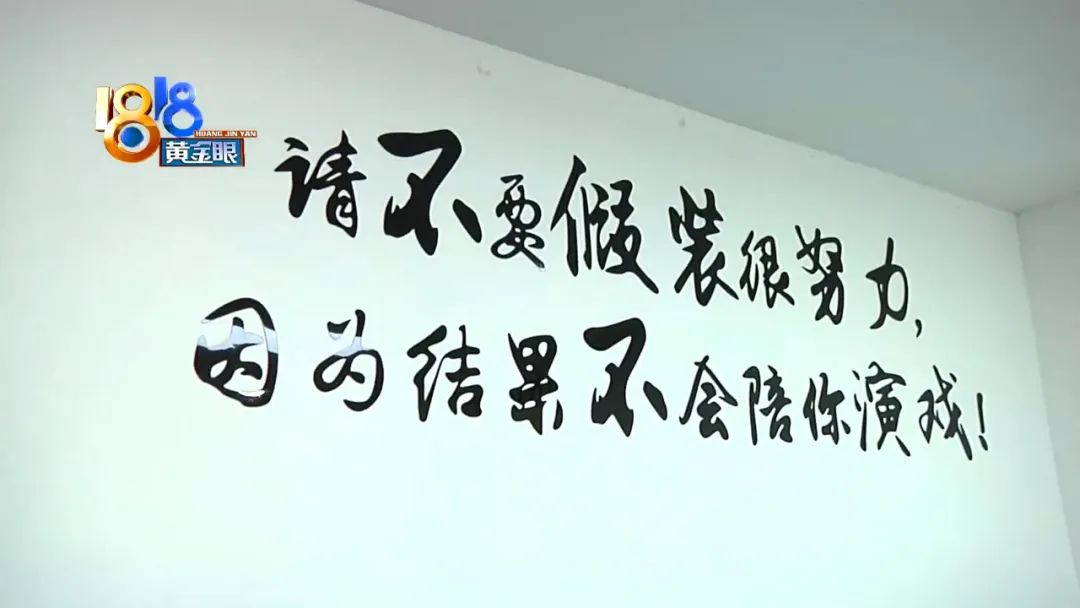 1818
HUANG JIN YAN
黄金眼
请不要假装很努力,
因为结果不会陪你演戏!